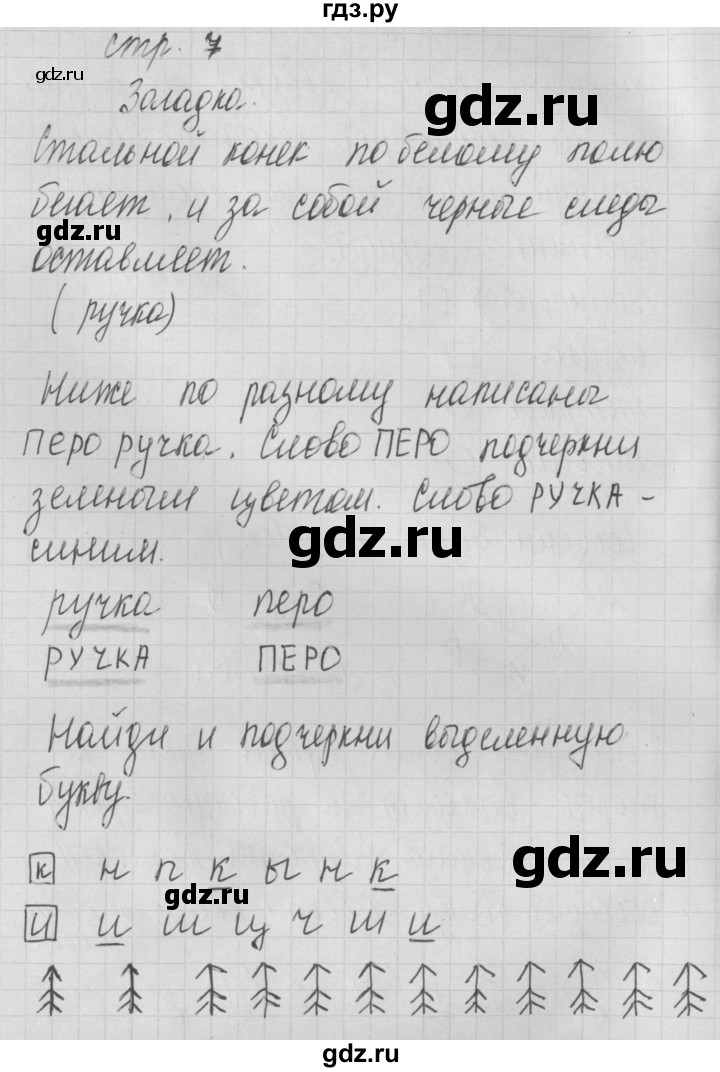 гдз.ру
стр. 7
gdz.ru
Загадка.
gdz.ru
Стальной конек по белому полю
бегает, и за собой черные следы
gdz.ru
оставляет.
(ручка)
Ниже по разному написаны
перо ручка. Слово ПЕРО подчеркни
зеленым цветом. Слово РУЧКА -
gdz.ru
синим.
ручка перо
РУЧКА ПЕРО
Найди и подчеркни выделенную
букву.
gdz.ru
к н п к ы н к
gdz.ru
и и ш ц ч ш и
gdz.ru